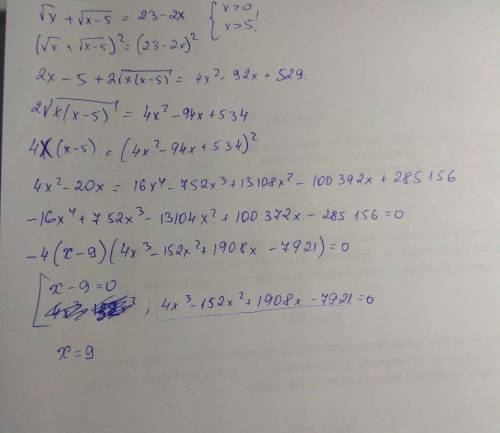 √x + √x-5 = 23-2x { x>0,
x>5.
(√x + √x-5)² = (23-2x)²
2x - 5 + 2√x(x-5) = 4x² - 92x + 529.
2√x(x-5) = 4x² - 94x + 534
4x(x-5) = (4x² - 94x + 534)²
4x² - 20x = 16x⁴ - 752x³ + 13108x² - 100392x + 285156
-16x⁴ + 752x³ - 13104x² + 100372x - 285156 = 0
-4(x-9)(4x³ - 152x² + 1908x - 7921) = 0
[ x - 9 = 0
; 4x³ - 152x² + 1908x - 7921 = 0
x = 9